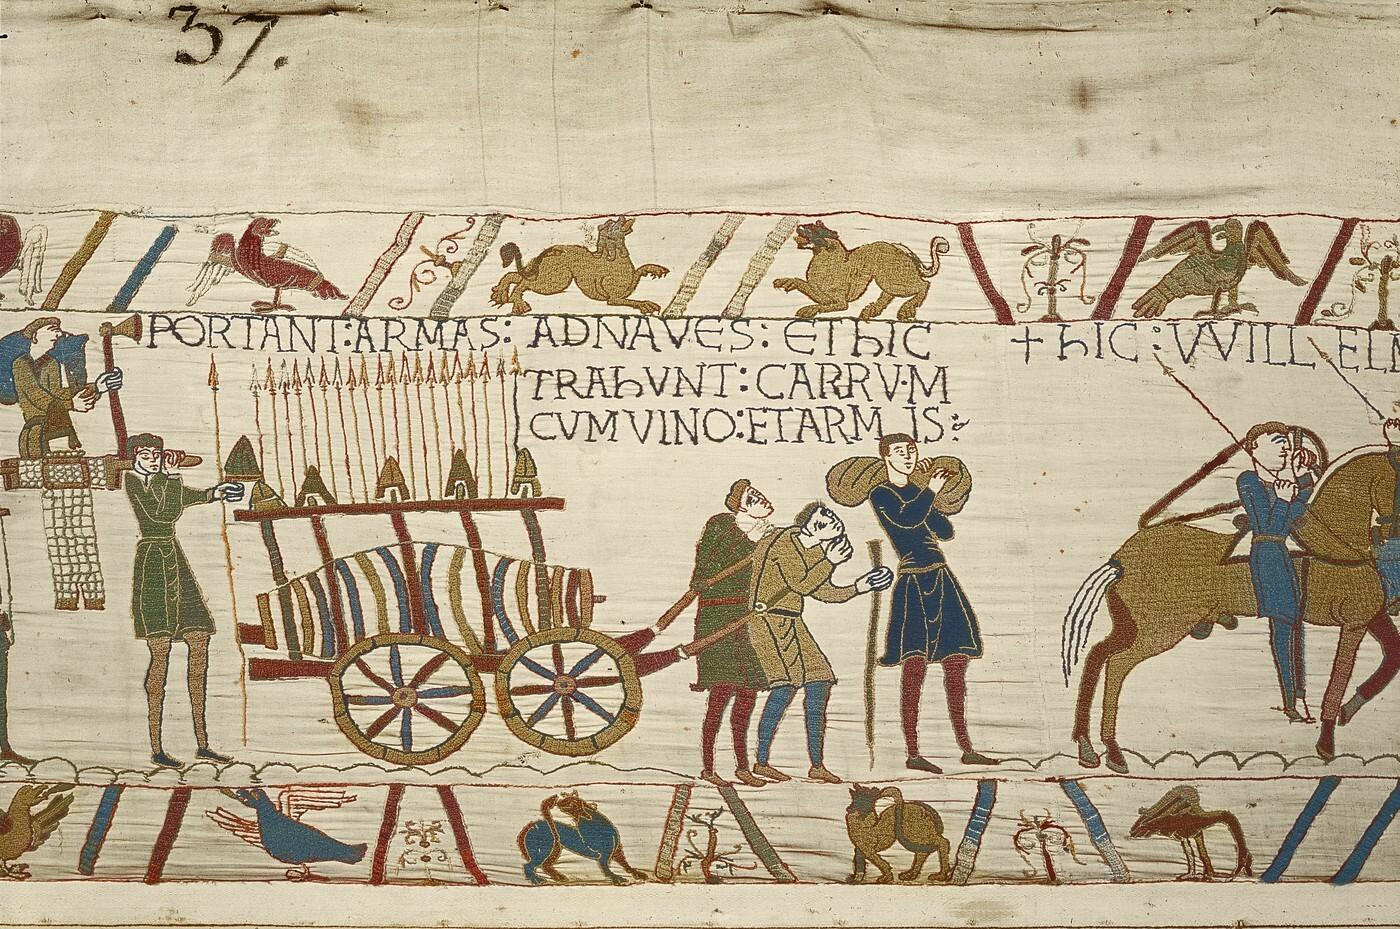 37.
PORTANT:ARMAS: ADNAVES: EThIC
TRAhVNT: CARRV·M
CVMVINO:ETARM IS:
+ hIC: VVILLELM